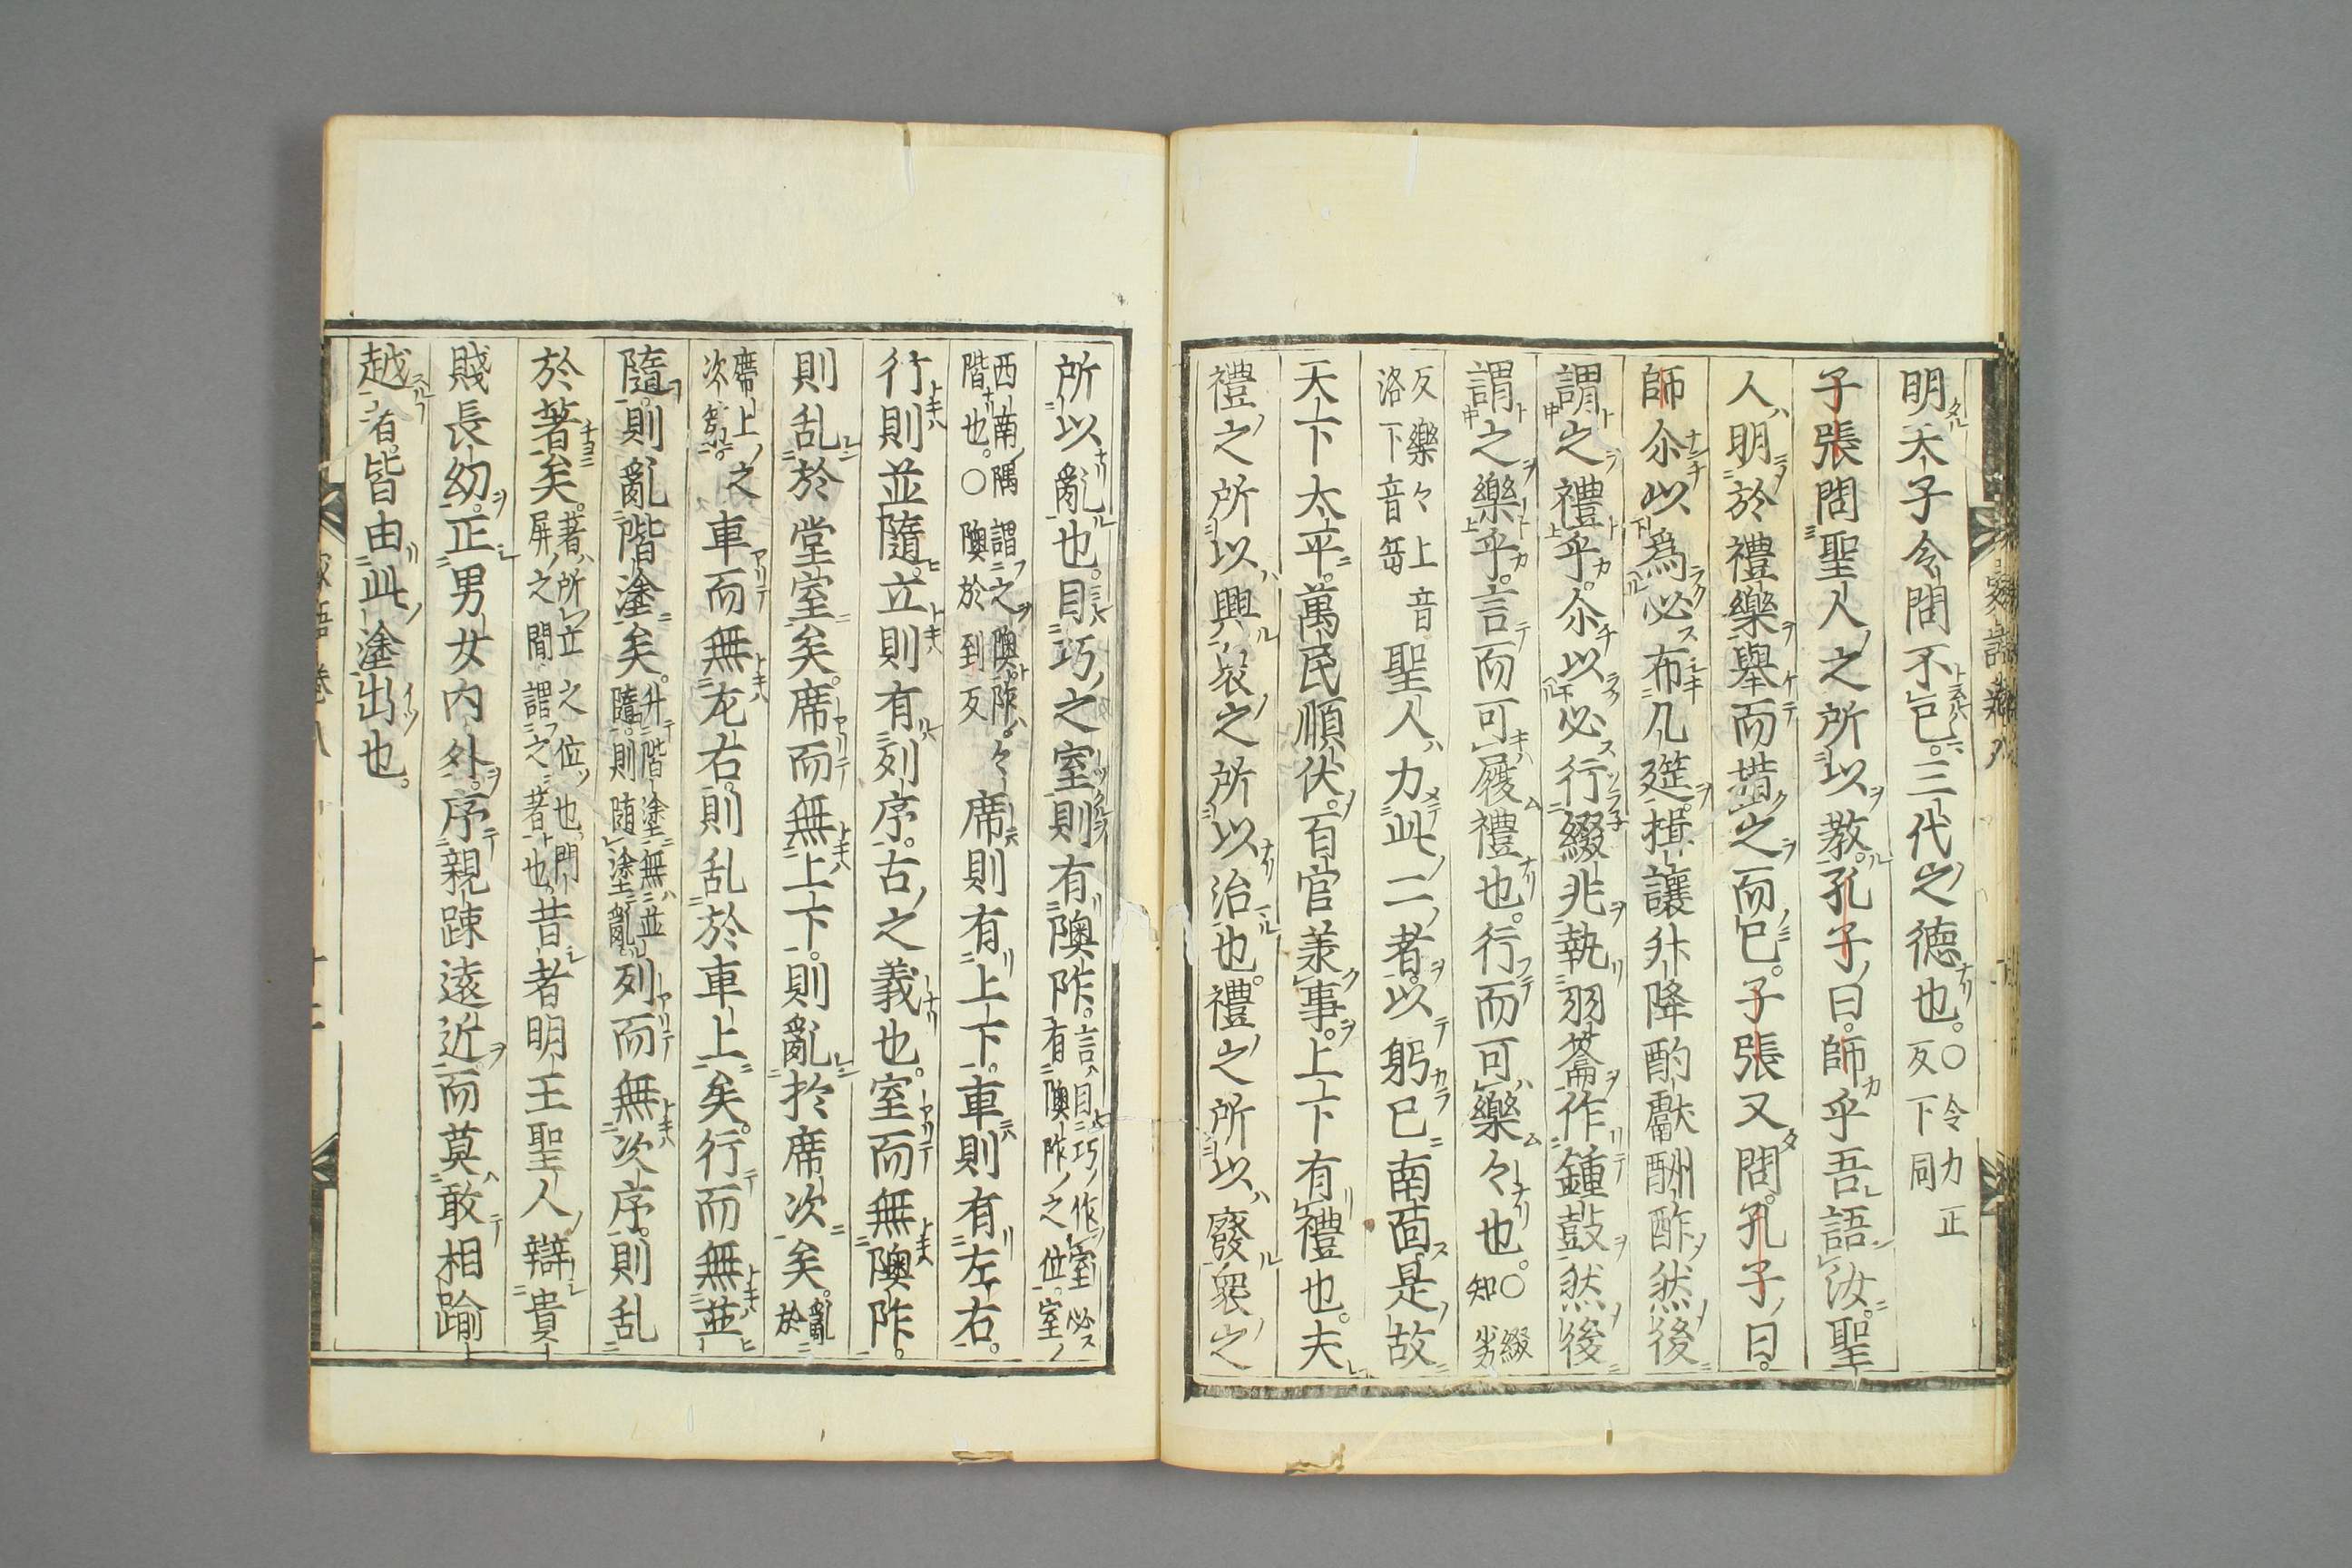 明天子令問不已。三代之德也。○令力正反下同
子張問聖人之所以教。孔子曰。師乎吾語汝。聖
人明於禮樂舉而措之而已。子張又問。孔子曰。
師尒以爲必布几筵揖讓升降酌獻酬酢然後
謂之禮乎。尒以必行綴兆執羽籥作鍾鼓然後
謂之樂乎。言而可履禮也。行而可樂々也。○綴知劣
反樂々上音洛下音岳聖人力此二者。以躬己南面是故
天下太平。萬民順伏。百官羕事。上下有禮也。夫
禮之所以興衆之所以治也。禮之所以廢衆之
所以亂也。目巧之室則有隩阼。言目巧作室必有隩阼之位。室
西南隅謂之隩阼。々階也。○隩於到反席則有上下。車則有左右。
行則並隨。立則有列序。古之義也。室而無隩阼。
則乱於堂室矣。席而無上下。則亂於席次矣。亂於
席上之次車而無左右。則乱於車上矣。行而無並
隨。則亂階塗矣。升階塗無並隨。則階塗亂列而無次序。則乱
於著矣。著所立之位也。門屏之間謂之著也。昔者明王聖人辯貴
賤長幼。正男女内外。序親踈遠近而莫敢相踰
越者。皆由此塗出也。
家語卷八